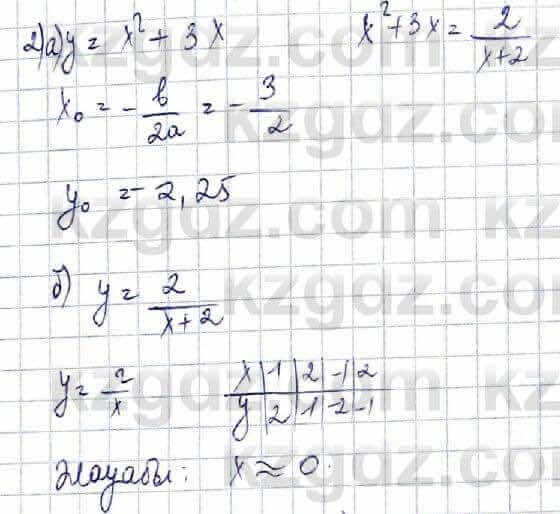 2) а) y = x² + 3x    x² + 3x = 2/(x+2)
x₀ = -b/2a = -3/2
y₀ = -2,25
б) y = 2/(x+2)
y = 2/x    x | 1 | 2 | -1 | 2
y | 2 | 1 | -2 | -1
Жауабы: x ≈ 0.
kzgdz.com